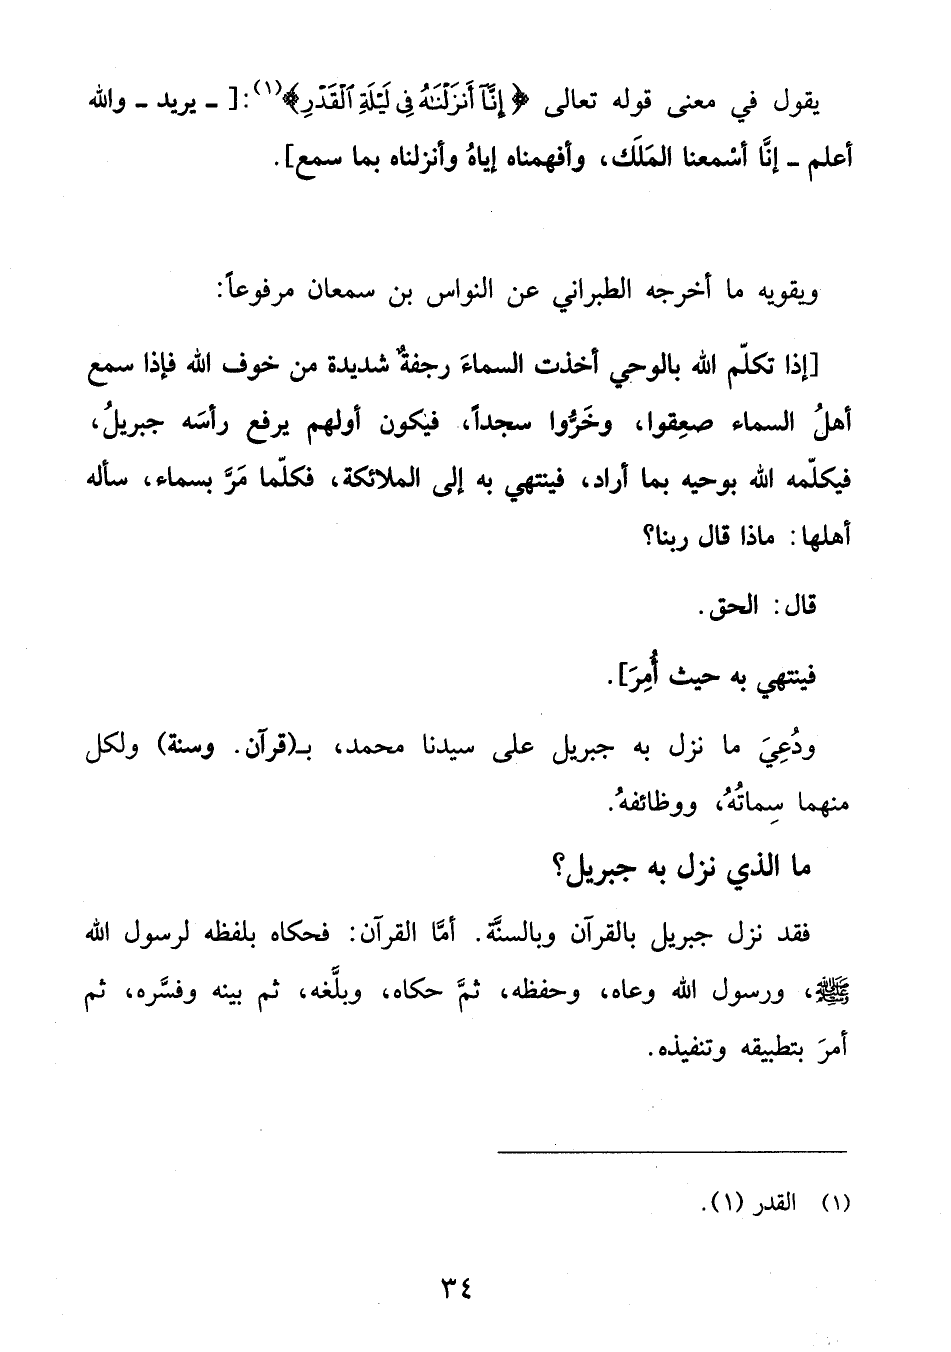 يقول في معنى قوله تعالى ﴿إِنَّآ أَنزَلْنَٰهُ فِى لَيْلَةِ ٱلْقَدْرِ﴾(١): [ ـ يريد ـ والله
أعلم ـ إنَّا أسْمعنا المَلَك، وأفهمناه إياهُ وأنزلناه بما سمع].
ويقويه ما أخرجه الطبراني عن النواس بن سمعان مرفوعاً:
[إذا تكلّم الله بالوحي أخذت السماءَ رجفةٌ شديدة من خوف الله فإذا سمع
أهلُ السماء صعِقوا، وخَرُّوا سجداً، فيكون أولهم يرفع رأسَه جبريلُ،
فيكلمه الله بوحيه بما أراد، فينتهي به إلى الملائكة، فكلّما مَرَّ بسماء، سأله
أهلها: ماذا قال ربنا؟
قال: الحق.
فينتهي به حيث أُمِرَ].
ودُعِيَ ما نزل به جبريل على سيدنا محمد، بـ(قرآن. وسنة) ولكل
منهما سِماتُهُ، ووظائفهُ.
ما الذي نزل به جبريل؟
فقد نزل جبريل بالقرآن وبالسنَّة. أمَّا القرآن: فحكاه بلفظه لرسول الله
ﷺ، ورسول الله وعاه، وحفظه، ثمَّ حكاه، وبلَّغه، ثم بينه وفسَّره، ثم
أمرَ بتطبيقه وتنفيذه.
(١) القدر (١).
٣٤